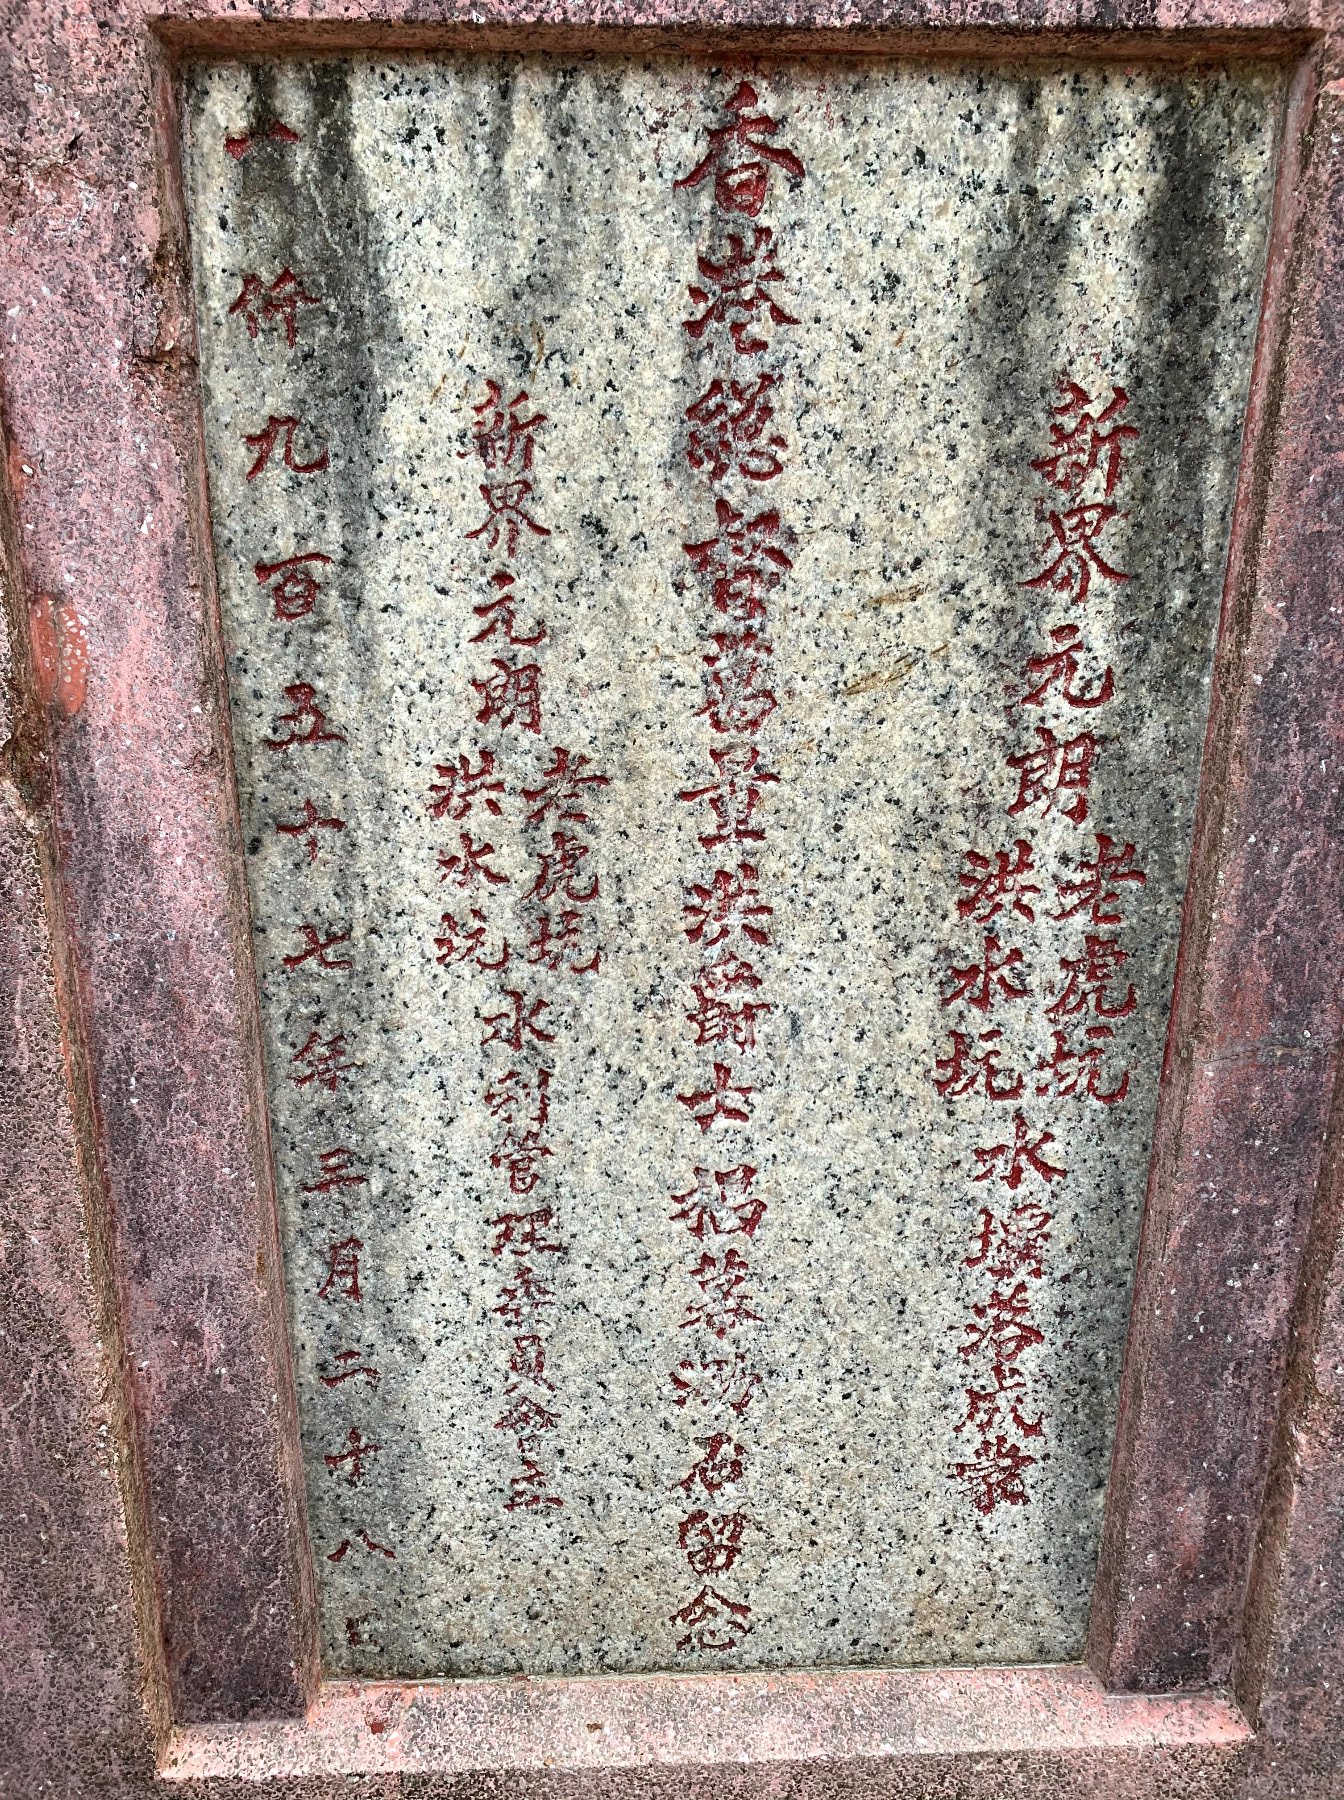 新界元朗老虎坑洪水坑水壩落成蒙
香港總督葛量洪爵士揭幕泐石留念
新界元朗老虎坑洪水坑水利管理委員會立
一仟九百五十七年三月二十八日